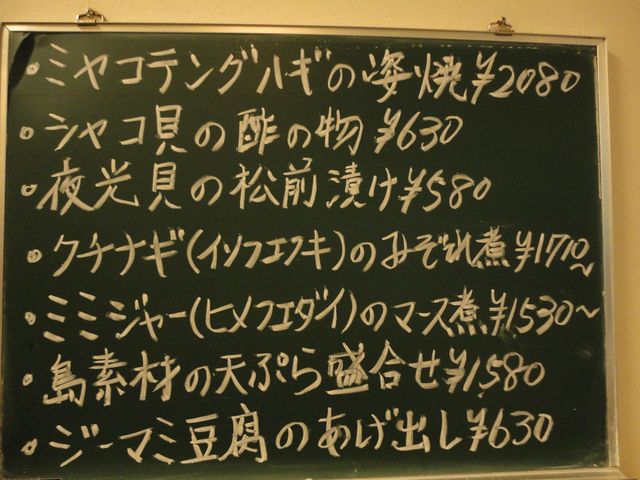 ・ミヤコテングハギの姿焼¥2080
・シャコ貝の酢の物¥630
・夜光貝の松前漬け¥580
・クチナギ(イソフエフキ)のみぞれ煮¥1710~
・ミミジャー(ヒメフエダイ)のマース煮¥1530~
・島素材の天ぷら盛合せ¥1580
・ジーマミ豆腐のあげ出し¥630